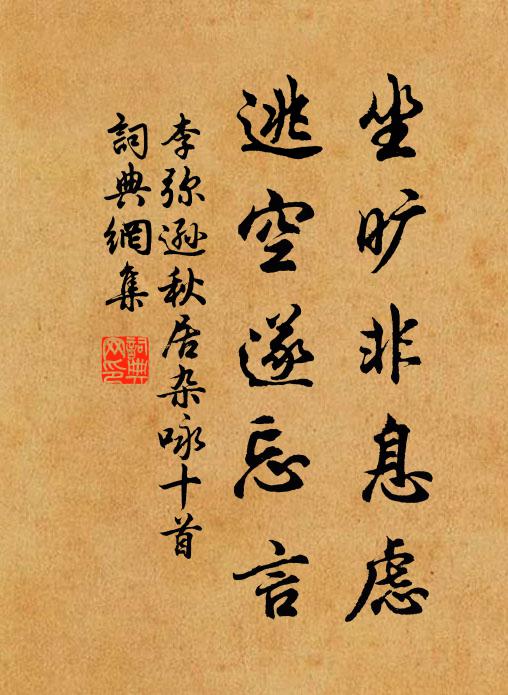 坐旷非息虑
逃空遂忘言
李弥逊秋居杂咏十首
詞典網集
詞典网印